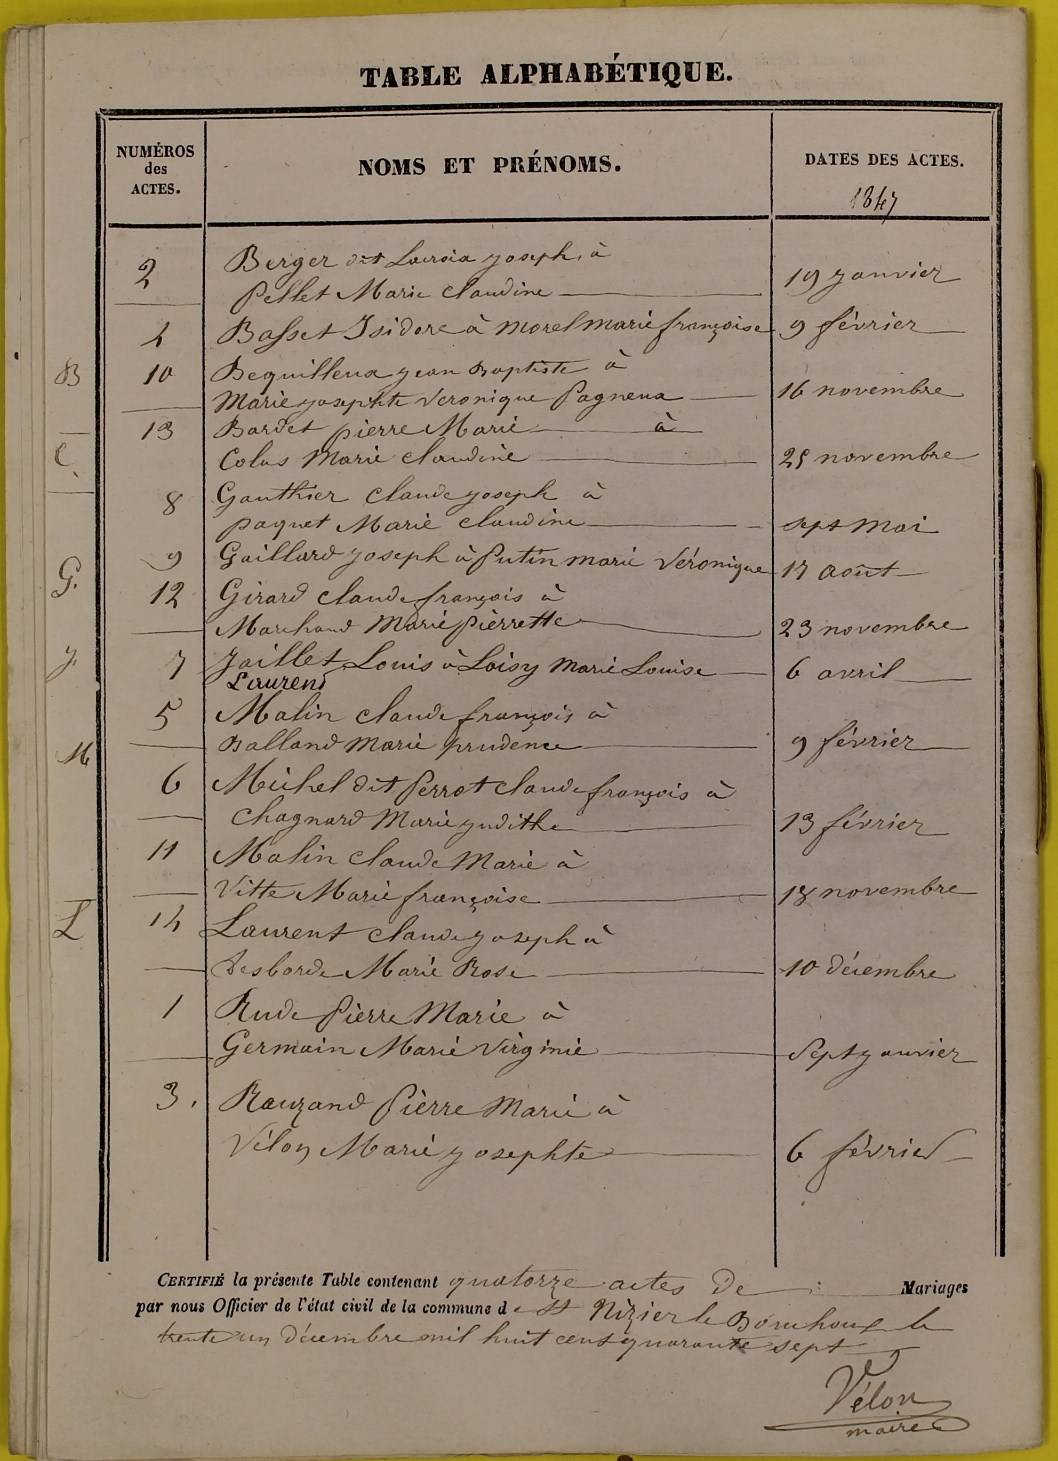 TABLE ALPHABÉTIQUE.
NUMÉROS
des
ACTES.
NOMS ET PRÉNOMS.
DATES DES ACTES.
1847
2 Berger dit Lacroix joseph, à
Pellet Marie claudine 19 janvier
4 Basset Isidore à Morel marie françoise 9 février
B 10 Bequilleux jean Baptiste à
Marie josephte Veronique Pagneux 16 novembre
13 Bardet pierre Marie à
C. Colas Marie claudine 25 novembre
8 Gauthier claude joseph à
paquet Marie claudine sept Mai
9 Gaillard joseph à Putin marie Véronique 17 août
G. 12 Girard claude françois à
Marchand Marie pièrrette 23 novembre
J. 7 Jaillet Louis à Loisy Marie Louise 6 avril
Laurend
5 Malin claude françois à
Balland Marie prudence 9 février
M 6 Michel dit Perrot claude françois à
Chagnard Marie judithe 13 février
11 Malin claude Marie à
Vitte Marie françoise 18 novembre
L 14 Laurent claude joseph à
Desborde Marie Rose 10 décembre
1 Rude Pièrre Marie à
Germain Marie Virginie Sept janvier
3. Rauzand Pièrre Marie à
Vélon Marie josephte 6 février
CERTIFIÉ la présente Table contenant quatorze actes de Mariages
par nous Officier de l'état civil de la commune de St Nizier le Bouchoux le
trente un Décembre mil huit cent quarante sept
Vélon
maire